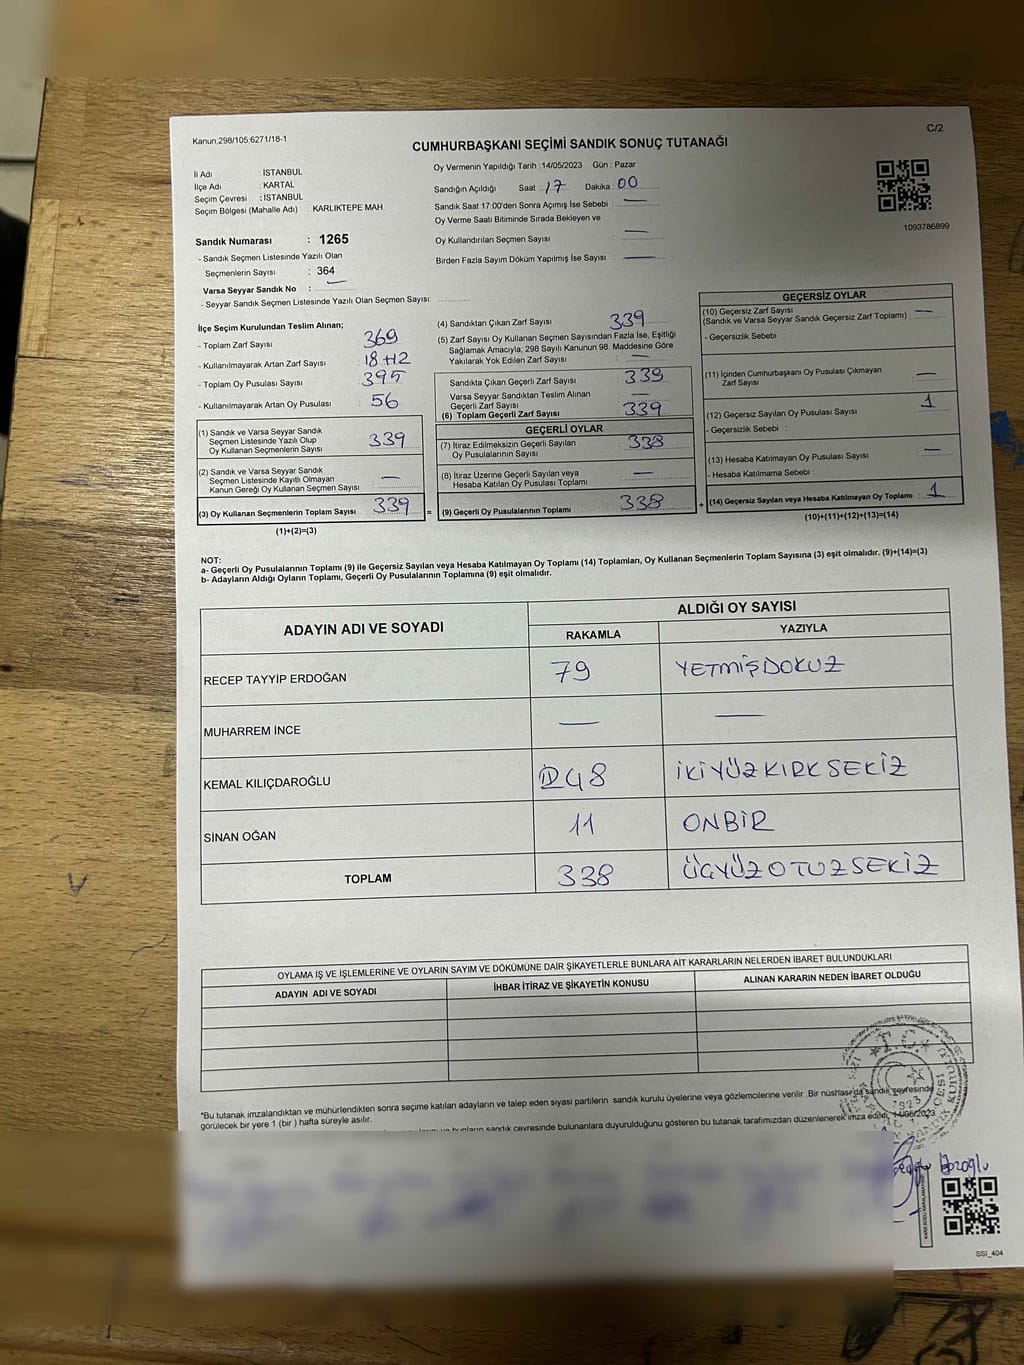 Kanun,298/105;6271/18-1
C/2
CUMHURBAŞKANI SEÇİMİ SANDIK SONUÇ TUTANAĞI
İl Adı : İSTANBUL
İlçe Adı : KARTAL
Seçim Çevresi : İSTANBUL
Seçim Bölgesi (Mahalle Adı) : KARLIKTEPE MAH.
Sandık Numarası : 1265
- Sandık Seçmen Listesinde Yazılı Olan
Seçmenlerin Sayısı : 364
Varsa Seyyar Sandık No : —
- Seyyar Sandık Seçmen Listesinde Yazılı Olan Seçmen Sayısı:
Oy Vermenin Yapıldığı Tarih : 14/05/2023 Gün : Pazar
Sandığın Açıldığı Saat : 17 Dakika : 00
Sandık Saat 17:00'den Sonra Açımış İse Sebebi : —
Oy Verme Saati Bitiminde Sırada Bekleyen ve
Oy Kullandırılan Seçmen Sayısı : —
Birden Fazla Sayım Döküm Yapılmış İse Sayısı : —
1093786899
İlçe Seçim Kurulundan Teslim Alınan;
- Toplam Zarf Sayısı 369
- Kullanılmayarak Artan Zarf Sayısı 18+12
- Toplam Oy Pusulası Sayısı 395
- Kullanılmayarak Artan Oy Pusulası 56
(1) Sandık ve Varsa Seyyar Sandık
Seçmen Listesinde Yazılı Olup
Oy Kullanan Seçmenlerin Sayısı 339
(2) Sandık ve Varsa Seyyar Sandık
Seçmen Listesinde Kayıtlı Olmayan
Kanun Gereği Oy Kullanan Seçmen Sayısı —
(3) Oy Kullanan Seçmenlerin Toplam Sayısı 339 =
(1)+(2)=(3)
(4) Sandıktan Çıkan Zarf Sayısı 339
(5) Zarf Sayısı Oy Kullanan Seçmen Sayısından Fazla İse, Eşitliği
Sağlamak Amacıyla, 298 Sayılı Kanunun 98. Maddesine Göre
Yakılarak Yok Edilen Zarf Sayısı —
Sandıkta Çıkan Geçerli Zarf Sayısı 339
Varsa Seyyar Sandıktan Teslim Alınan
Geçerli Zarf Sayısı —
(6) Toplam Geçerli Zarf Sayısı 339
GEÇERLİ OYLAR
(7) İtiraz Edilmeksizin Geçerli Sayılan
Oy Pusulalarının Sayısı 338
(8) İtiraz Üzerine Geçerli Sayılan veya
Hesaba Katılan Oy Pusulası Toplamı —
(9) Geçerli Oy Pusulalarının Toplamı 338 +
GEÇERSİZ OYLAR
(10) Geçersiz Zarf Sayısı —
(Sandık ve Varsa Seyyar Sandık Geçersiz Zarf Toplamı) :
- Geçersizlik Sebebi :
(11) İçinden Cumhurbaşkanı Oy Pusulası Çıkmayan
Zarf Sayısı —
(12) Geçersiz Sayılan Oy Pusulası Sayısı 1
- Geçersizlik Sebebi :
(13) Hesaba Katılmayan Oy Pusulası Sayısı —
- Hesaba Katılmama Sebebi :
(14) Geçersiz Sayılan veya Hesaba Katılmayan Oy Toplamı : 1
(10)+(11)+(12)+(13)=(14)
NOT:
a- Geçerli Oy Pusulalarının Toplamı (9) ile Geçersiz Sayılan veya Hesaba Katılmayan Oy Toplamı (14) Toplamları, Oy Kullanan Seçmenlerin Toplam Sayısına (3) eşit olmalıdır. (9)+(14)=(3)
b- Adayların Aldığı Oyların Toplamı, Geçerli Oy Pusulalarının Toplamına (9) eşit olmalıdır.
ADAYIN ADI VE SOYADI
ALDIĞI OY SAYISI
RAKAMLA YAZIYLA
RECEP TAYYİP ERDOĞAN 79 YETMİŞDOKUZ
MUHARREM İNCE — —
KEMAL KILIÇDAROĞLU 248 İKİYÜZKIRKSEKİZ
SİNAN OĞAN 11 ONBİR
TOPLAM 338 ÜÇYÜZOTUZSEKİZ
OYLAMA İŞ VE İŞLEMLERİNE VE OYLARIN SAYIM VE DÖKÜMÜNE DAİR ŞİKAYETLERLE BUNLARA AİT KARARLARIN NELERDEN İBARET BULUNDUKLARI
ADAYIN ADI VE SOYADI İHBAR İTİRAZ VE ŞİKAYETİN KONUSU ALINAN KARARIN NEDEN İBARET OLDUĞU
*Bu tutanak imzalandıktan ve mühürlendikten sonra seçime katılan adayların ve talep eden siyasi partilerin sandık kurulu üyelerine veya gözlemcilerine verilir. Bir nüshası da sandık çevresinde
görülecek bir yere 1 (bir) hafta süreyle asılır.
bunların sandık çevresinde bulunanlara duyurulduğunu gösteren bu tutanak tarafımızdan düzenlenerek imza edildi. 14/05/2023
T.C.
1923
SSI_404